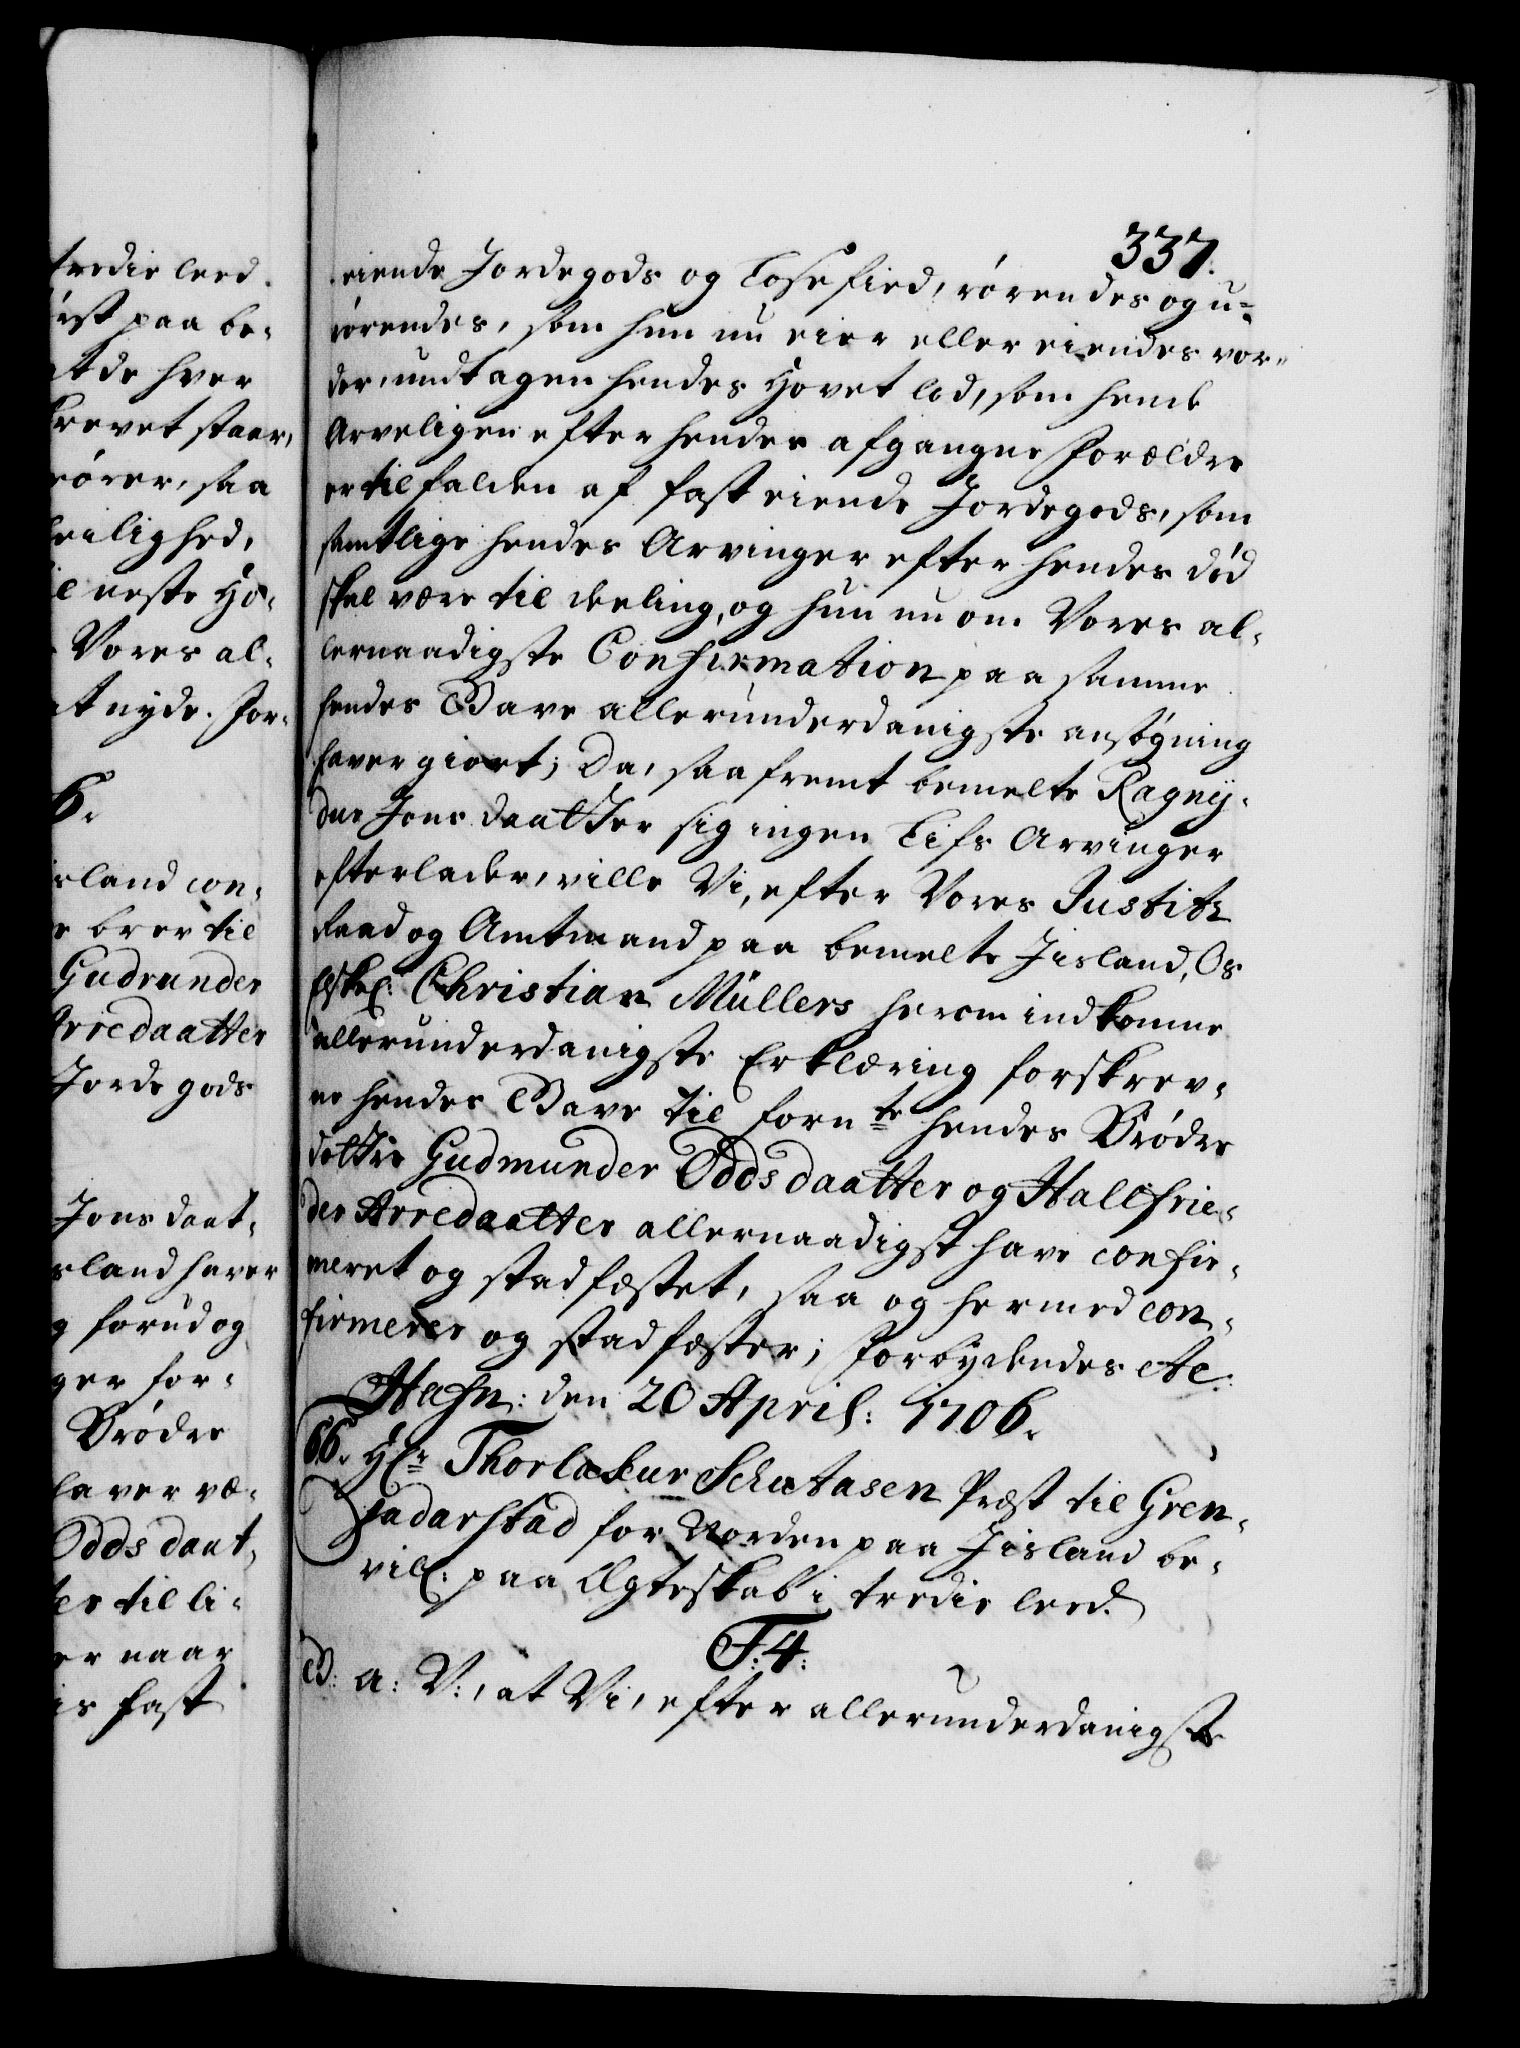 tredie leed.
ørst paa be-
at de hver
krevet staar,
rører, saa
leilighed,
il neste Hø-
Vores al-
at nyde. For-
6.
island con-
e brev til
Gudrunder
Arredaatter
Jordegods
Jons daat-
sland haver
g forud og
ger for-
Brødre
laver væ-
Odds daat-
ter til li-
er naar
is fast
337.
eiende Jordegods og Løsefied, rørendes og u-
rørendes, som hun nu eier eller eiendes vor-
der, undtagen hendes Hovet lod, som hende
Arveligen efter hendes afgangne Forældre
er tilfalden af fast eiende Jordegods, som
samtlige hendes Arvinger efter hendes død
skal være til deeling, og hun nu om Vores al-
lernaadigste Confirmation paa samme
hendes Gave allerunderdanigste ansøgning
haver giort; Da, saafremt bemelte Ragny-
due Jons daatter sig ingen Lifs Arvinger
efterlader, ville Vi, efter Vores Justitz
Raad og Amtmand paa bemelte Jisland, Os
elskel: Christian Müllers herom indkomne
allerunderdanigste Erklæring forskrev-
ne hendes Gave til forn<sup>te</sup> hendes Brødre
døttre Gudmunder Oddsdaatter og Hallfrie-
der Arredaatter allernaadigst have confir-
meret og stadfæstet, saa og hermed con-
firmerer og stadfæster; Forbydendes etc.
Hafn: den 20 April: 1706.
66. Hr: Thorlakur Schutasen Præst til Gren-
jadarstad for Norden paa Jisland be-
vil: paa Ægteskab i tredie leed.
F: 4:
G: a: V:, at Vi, efter allerunderdanigste